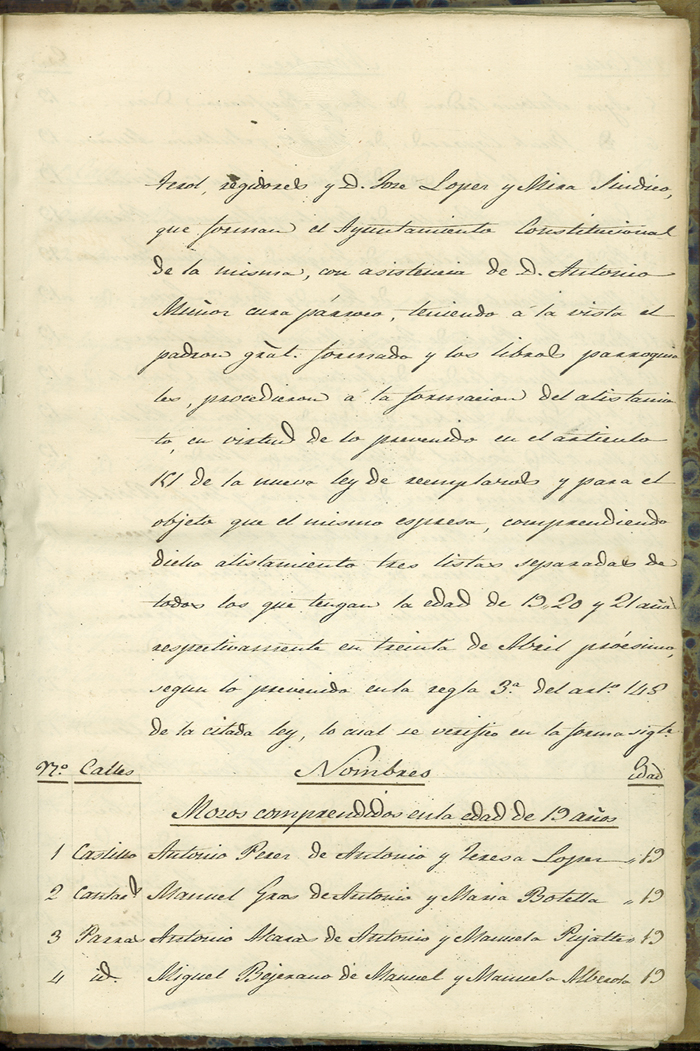 Terol, regidores y D. Jose Lopez y Mira Sindico,
que forman el Ayuntamiento Constitucional
de la misma, con asistencia de D. Antonio
Muñoz cura párroco, teniendo á la vista el
padron gral. formado y los libros parroquia
les, procedieron á la formacion del alistamien
to, en virtud de lo prevenido en el articulo
151 de la nueva ley de reemplazos y para el
objeto que el mismo espresa, comprendiendo
dicho alistamiento tres listas separadas de
todos los que tengan la edad de 19, 20 y 21 años
respectivamente en treinta de Abril procsimo,
segun lo prevenido en la regla 3.a del art.o 148
de la citada ley, lo cual se verificó en la forma sigte.
N.o Calles Nombres Edad
Mozos comprendidos en la edad de 19 años
1 Castillo Antonio Perez de Antonio y Teresa Lopez " 19
2 Manuel Gras de Antonio y Maria Botella " 19
3 Parras Antonio Alcaraz de Antonio y Manuela Pujalte " 19
4 id. Miguel Bejerano de Manuel y Manuela Alberola 19